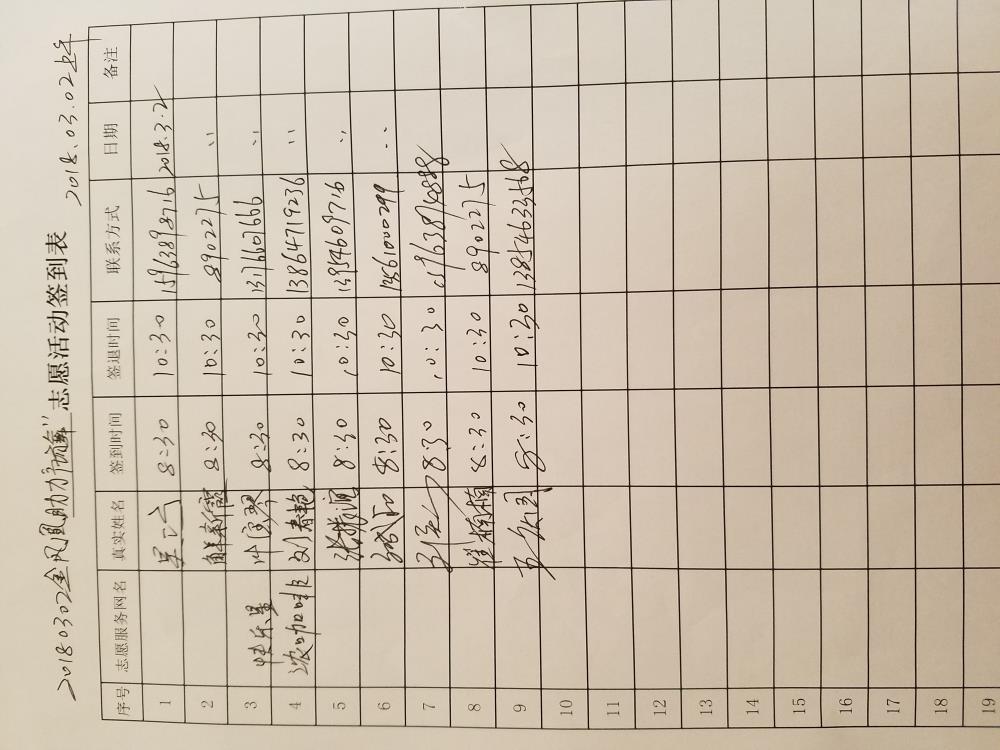 20180302金凤凰助力序號解"志愿活动签到表 2018.03.02上午
序号 志愿服务网名 真实姓名 签到时间 签退时间 联系方式 日期 备注
1 8:30 10:30 15963898716 2018.3.2
2 解新霞 8:30 10:30 8902275 ''
3 快乐星 叶淑琴 8:30 10:30 13176607666 ''
4 浓咖啡 刘春艳 8:30 10:30 13864719236 ''
5 8:30 10:30 13954609716 ''
6 8:30 10:30 13561000299 ''
7 8:30 10:30 15963894888
8 崔楠楠 8:30 10:30 8902275
9 8:30 10:30 13854633568
10
11
12
13
14
15
16
17
18
19